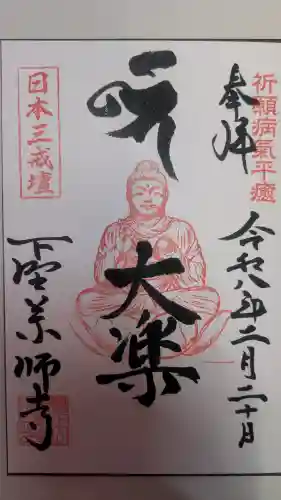 祈願病氣平癒
奉拝
令和八年二月二十日
大樂
日本三戒壇
下埜薬師寺